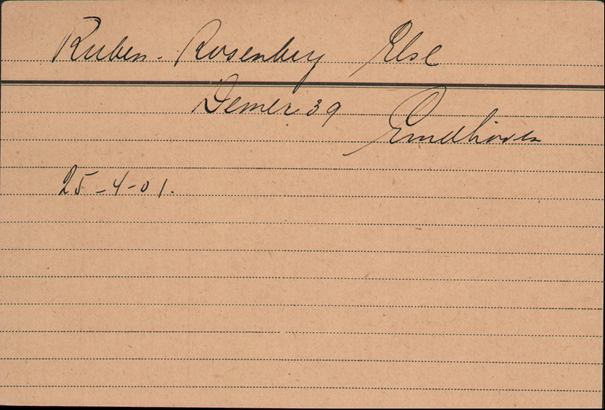 Ruben-Rosenberg Else
Demer 39
Eindhoven
25-4-01.